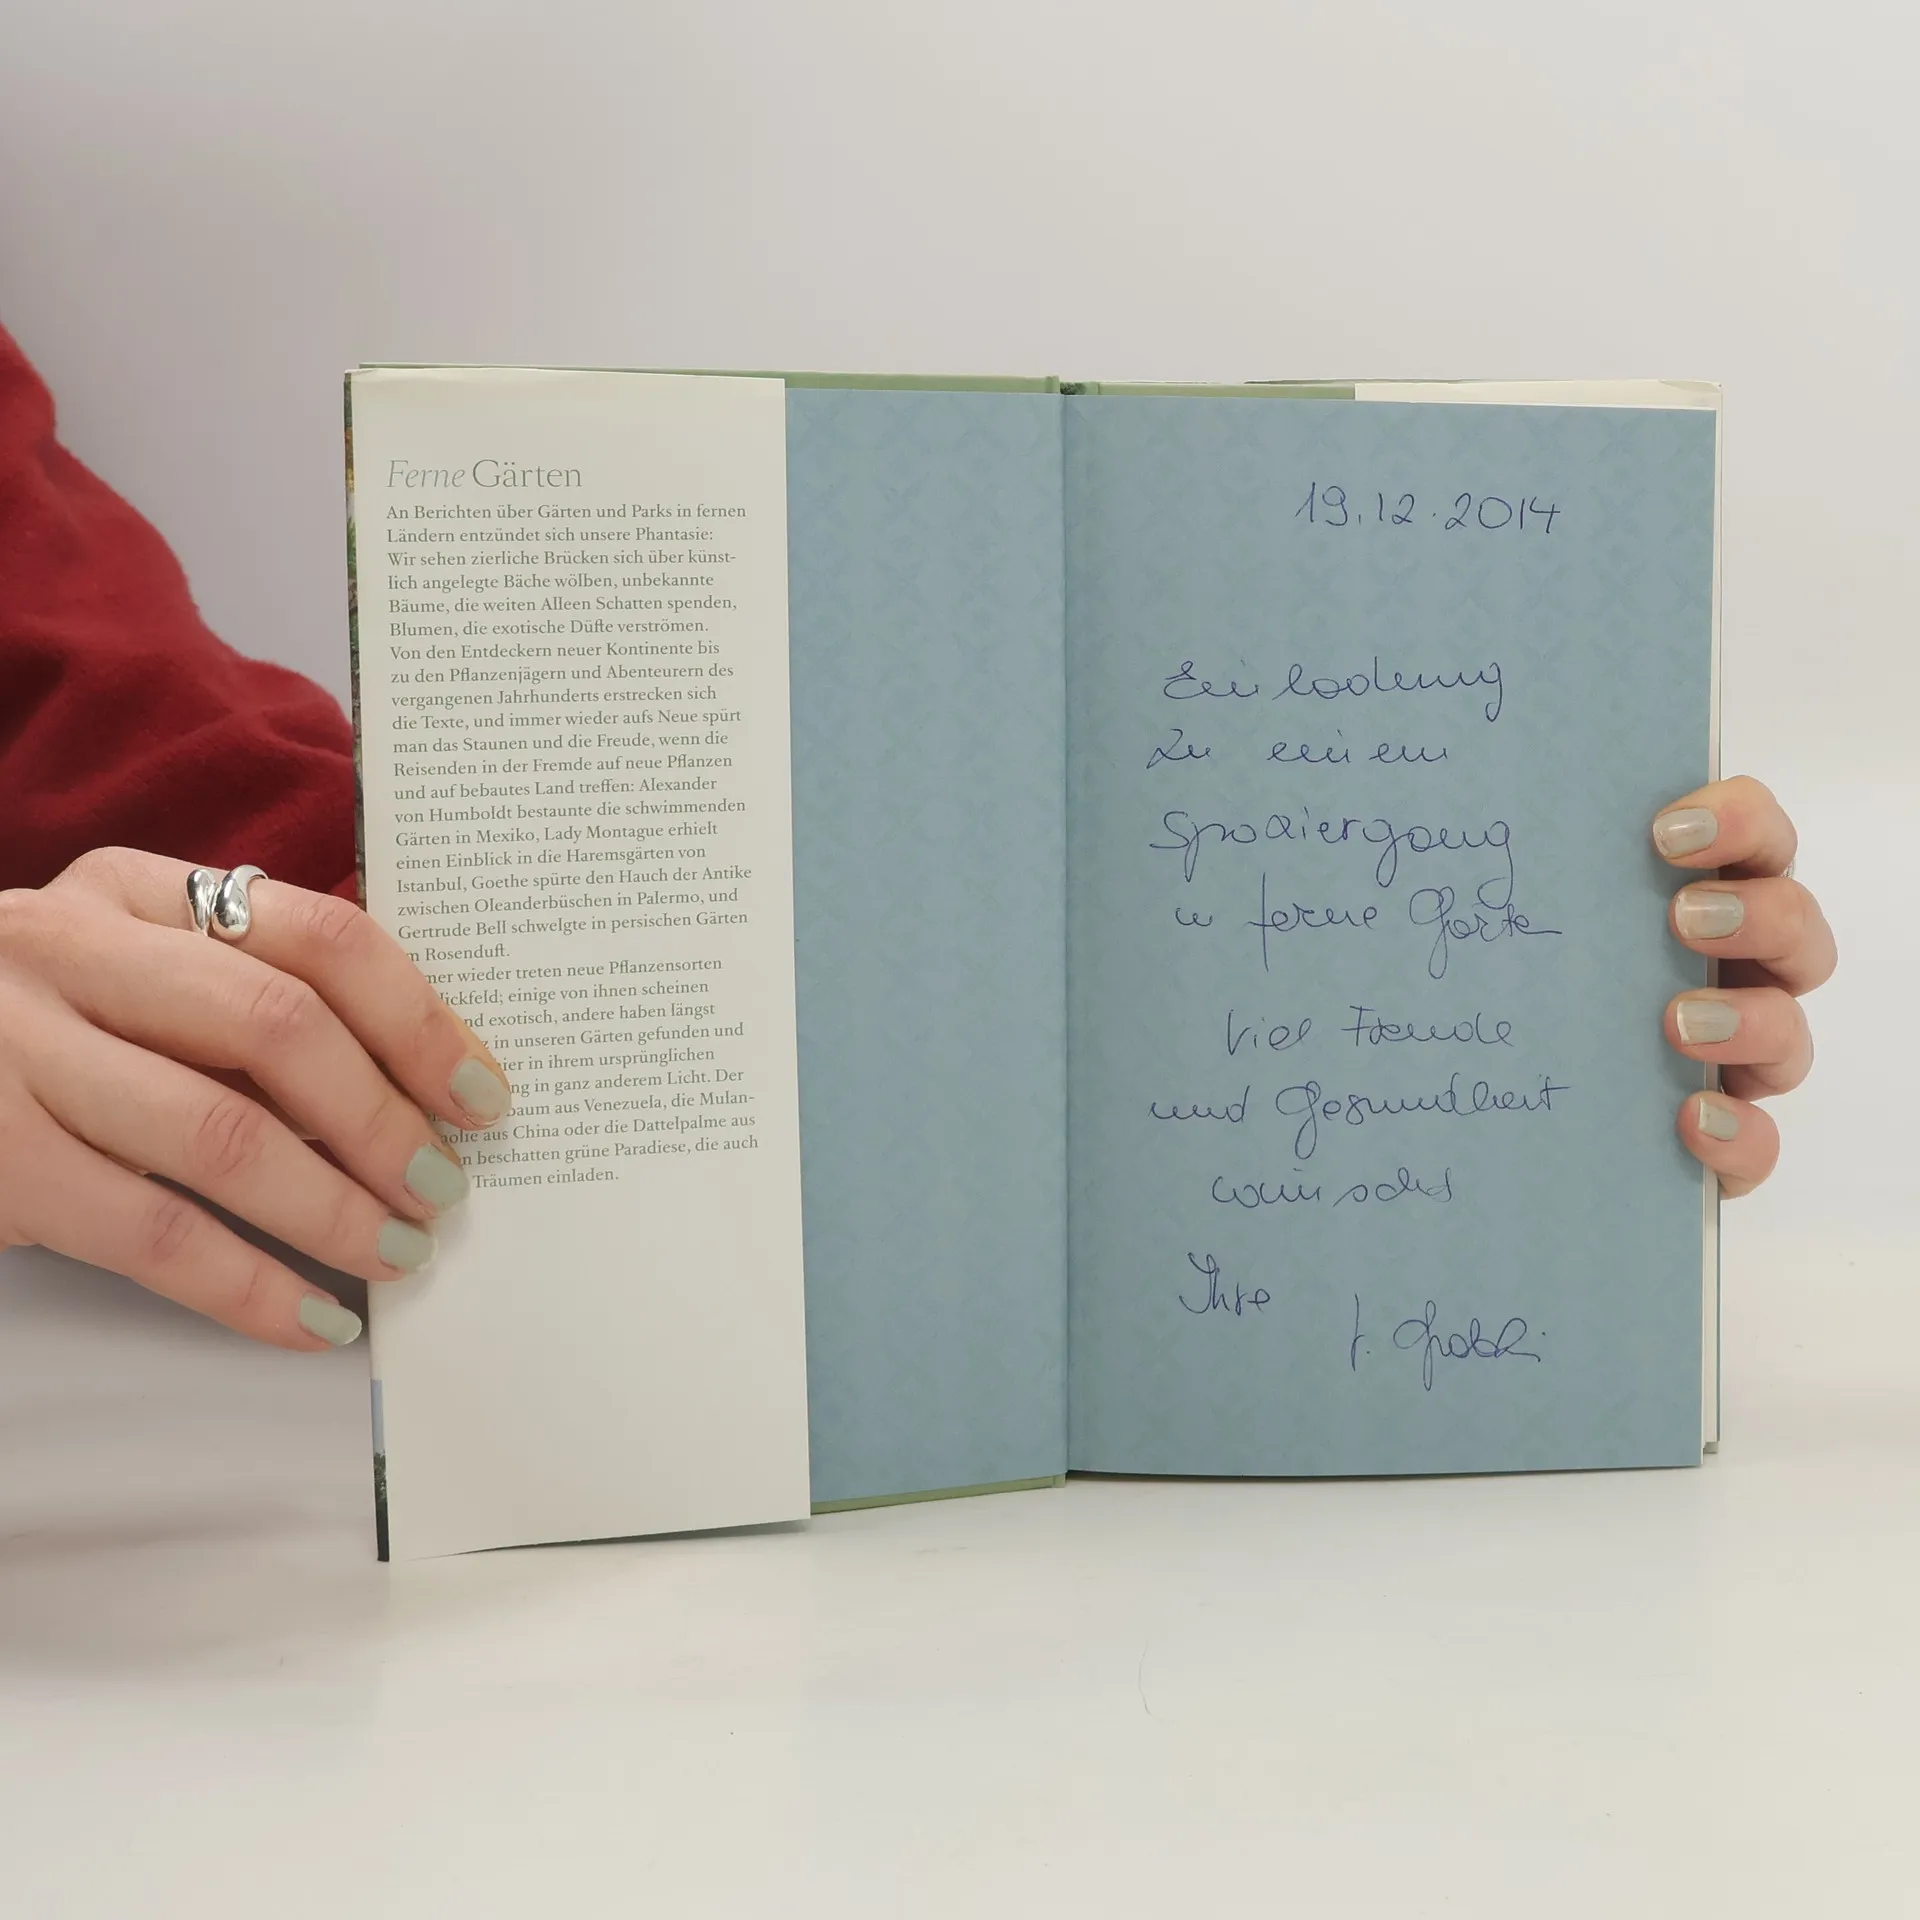 Ferne Gärten
An Berichten über Gärten und Parks in fernen
Ländern entzündet sich unsere Phantasie:
Wir sehen zierliche Brücken sich über künst-
lich angelegte Bäche wölben, unbekannte
Bäume, die weiten Alleen Schatten spenden,
Blumen, die exotische Düfte verströmen.
Von den Entdeckern neuer Kontinente bis
zu den Pflanzenjägern und Abenteurern des
vergangenen Jahrhunderts erstrecken sich
die Texte, und immer wieder aufs Neue spürt
man das Staunen und die Freude, wenn die
Reisenden in der Fremde auf neue Pflanzen
und auf bebautes Land treffen: Alexander
von Humboldt bestaunte die schwimmenden
Gärten in Mexiko, Lady Montague erhielt
einen Einblick in die Haremsgärten von
Istanbul, Goethe spürte den Hauch der Antike
zwischen Oleanderbüschen in Palermo, und
Gertrude Bell schwelgte in persischen Gärten
m Rosenduft.
mer wieder treten neue Pflanzensorten
lickfeld; einige von ihnen scheinen
nd exotisch, andere haben längst
z in unseren Gärten gefunden und
ier in ihrem ursprünglichen
ng in ganz anderem Licht. Der
baum aus Venezuela, die Mulan-
nolie aus China oder die Dattelpalme aus
n beschatten grüne Paradiese, die auch
Träumen einladen.
19.12.2014
Einladung
zu einem
Spaziergang
in ferne Gärten
Viel Freude
und Gesundheit
wünscht
Ihre